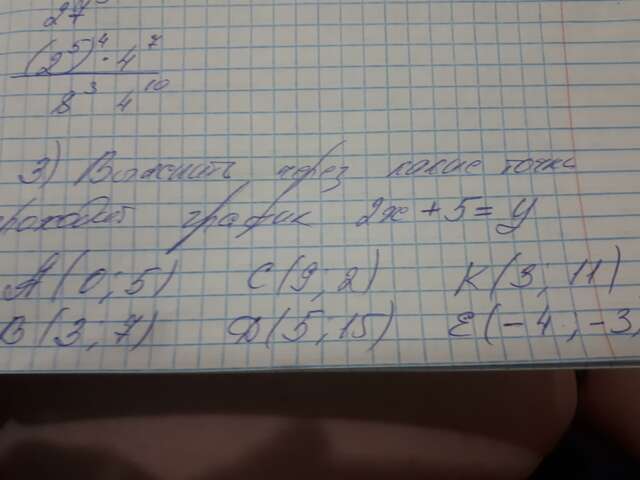 27
(2⁵)⁴ · 4⁷
8³ 4¹⁰
3) через какие точки
проходит график 2x + 5 = y
A(0; 5) C(9; 2) K(3; 11)
B(3; 7) Д(5; 15) E(-4; -3)